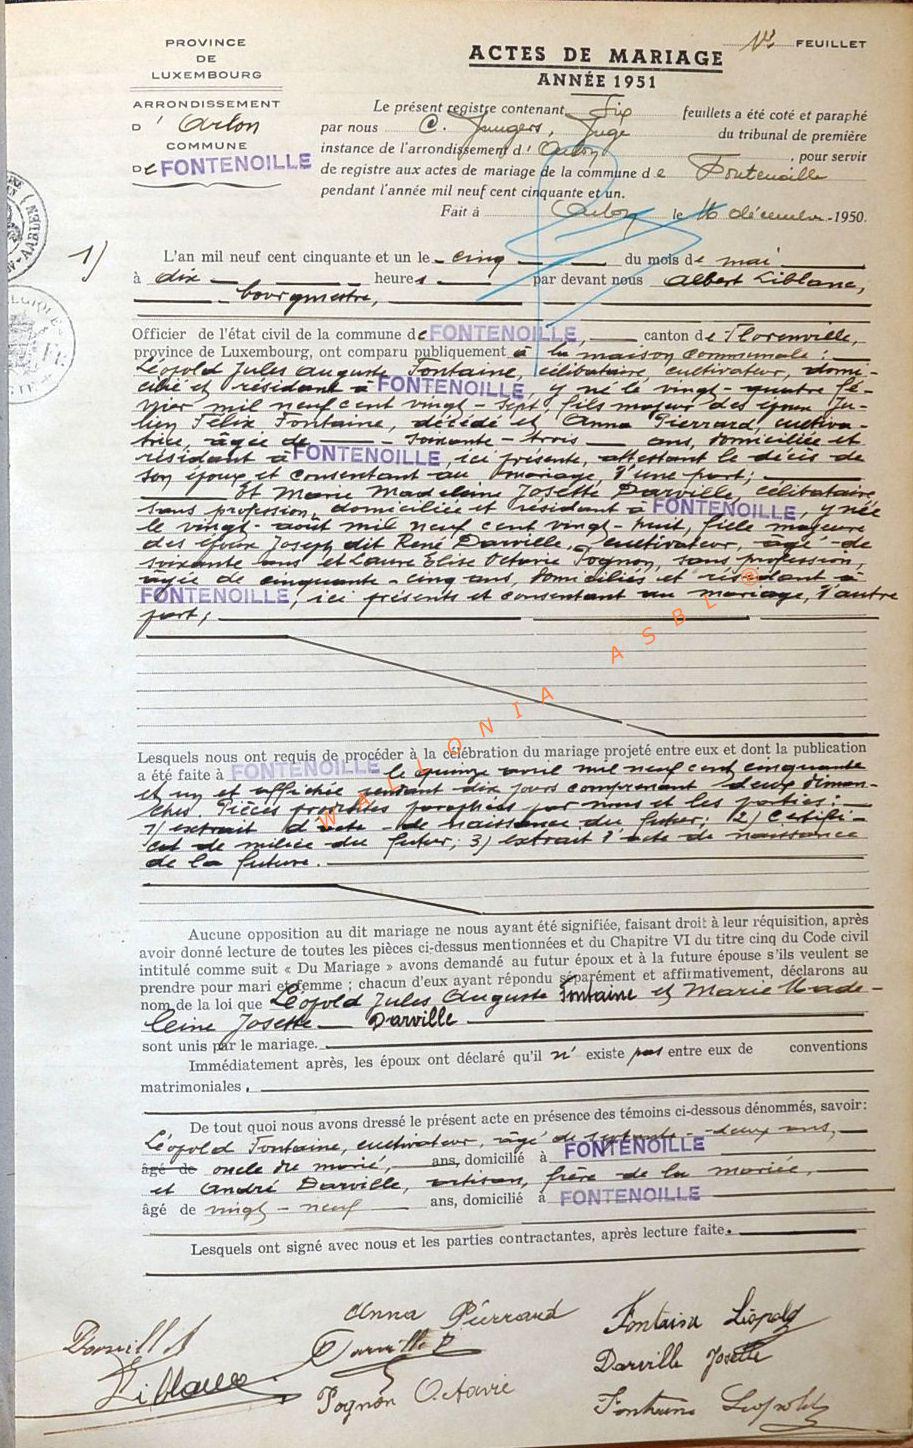 PROVINCE
DE
LUXEMBOURG
ARRONDISSEMENT
D' Arlon
COMMUNE
De FONTENOILLE
1r FEUILLET
ACTES DE MARIAGE
ANNÉE 1951
Le présent registre contenant six feuillets a été coté et paraphé
par nous C. Jungers, Juge du tribunal de première
instance de l'arrondissement d' Arlon, pour servir
de registre aux actes de mariage de la commune de Fontenoille
pendant l'année mil neuf cent cinquante et un.
Fait à Arlon le 16 décembre 1950.
1)
L'an mil neuf cent cinquante et un le cinq du mois de mai
à dix heures par devant nous Albert Liblanc,
bourgmestre,
Officier de l'état civil de la commune de FONTENOILLE, canton de Florenville,
province de Luxembourg, ont comparu publiquement à la maison communale :
Léopold Jules Auguste Fontaine, célibataire, cultivateur, domi-
cilié et résidant à FONTENOILLE, y né le vingt-quatre fé-
vrier mil neuf cent vingt-sept, fils majeur des époux Ju-
lien Félix Fontaine, décédé et Anna Pierrard, cultiva-
trice, âgée de soixante-trois ans, domiciliée et
résidant à FONTENOILLE, ici présente, attestant le décès de
son époux et consentant au mariage, d'une part;
Et Marie Madeleine Josette Darville, célibataire,
sans profession, domiciliée et résidant à FONTENOILLE, y née
le vingt août mil neuf cent vingt-huit, fille majeure
des époux Joseph dit René Darville, cultivateur, âgé de
soixante ans et Laure Elise Octavie Pognon, sans profession,
âgée de cinquante-cinq ans, domiciliés et résidant à
FONTENOILLE, ici présents et consentant au mariage, d'autre
part;
Lesquels nous ont requis de procéder à la célébration du mariage projeté entre eux et dont la publication
a été faite à FONTENOILLE le quinze avril mil neuf cent cinquante
et un et affichée pendant dix jours comprenant deux diman-
ches. Pièces produites paraphées par nous et les parties :
1) extrait d'acte de naissance du futur; 2) Certifi-
cat de milice du futur; 3) extrait d'acte de naissance
de la future.
Aucune opposition au dit mariage ne nous ayant été signifiée, faisant droit à leur réquisition, après
avoir donné lecture de toutes les pièces ci-dessus mentionnées et du Chapitre VI du titre cinq du Code civil
intitulé comme suit « Du Mariage » avons demandé au futur époux et à la future épouse s'ils veulent se
prendre pour mari et femme ; chacun d'eux ayant répondu séparément et affirmativement, déclarons au
nom de la loi que Léopold Jules Auguste Fontaine et Marie Made-
leine Josette Darville
sont unis par le mariage.
Immédiatement après, les époux ont déclaré qu'il n' existe pas entre eux de conventions
matrimoniales.
De tout quoi nous avons dressé le présent acte en présence des témoins ci-dessous dénommés, savoir :
Léopold Fontaine, cultivateur, âgé de septante-deux ans,
âgé de oncle du marié, ans, domicilié à FONTENOILLE
et André Darville, artisan, frère de la mariée,
âgé de vingt-neuf ans, domicilié à FONTENOILLE
Lesquels ont signé avec nous et les parties contractantes, après lecture faite.
Anna Pierrard
Fontaine Léopold
Darville A
Darville R
Darville Josette
Liblanc
Pognon Octavie
Fontaine Léopold
WALLONIA ASBL ®